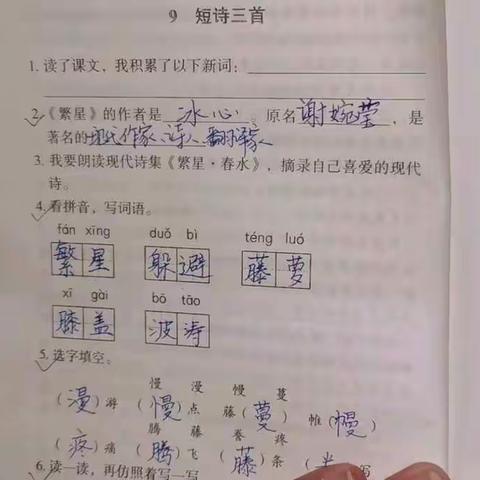 9 短诗三首
1. 读了课文，我积累了以下新词：
2.《繁星》的作者是 冰心 。原名 谢婉莹 ，是
著名的现代作家、诗人、翻译家
3. 我要朗读现代诗集《繁星·春水》，摘录自己喜爱的现代
诗。
4. 看拼音，写词语。
fán xīng duǒ bì téng luó
繁星 躲避 藤萝
xī gài bō tāo
膝盖 波涛
5. 选字填空。
慢 漫 幔 蔓
（漫）游 （慢）点 藤（蔓） 帷（幔）
腾 藤 誊 疼
（疼）痛 （腾）飞 （藤）条 （ 写
6. 读一读，再仿照着写一写